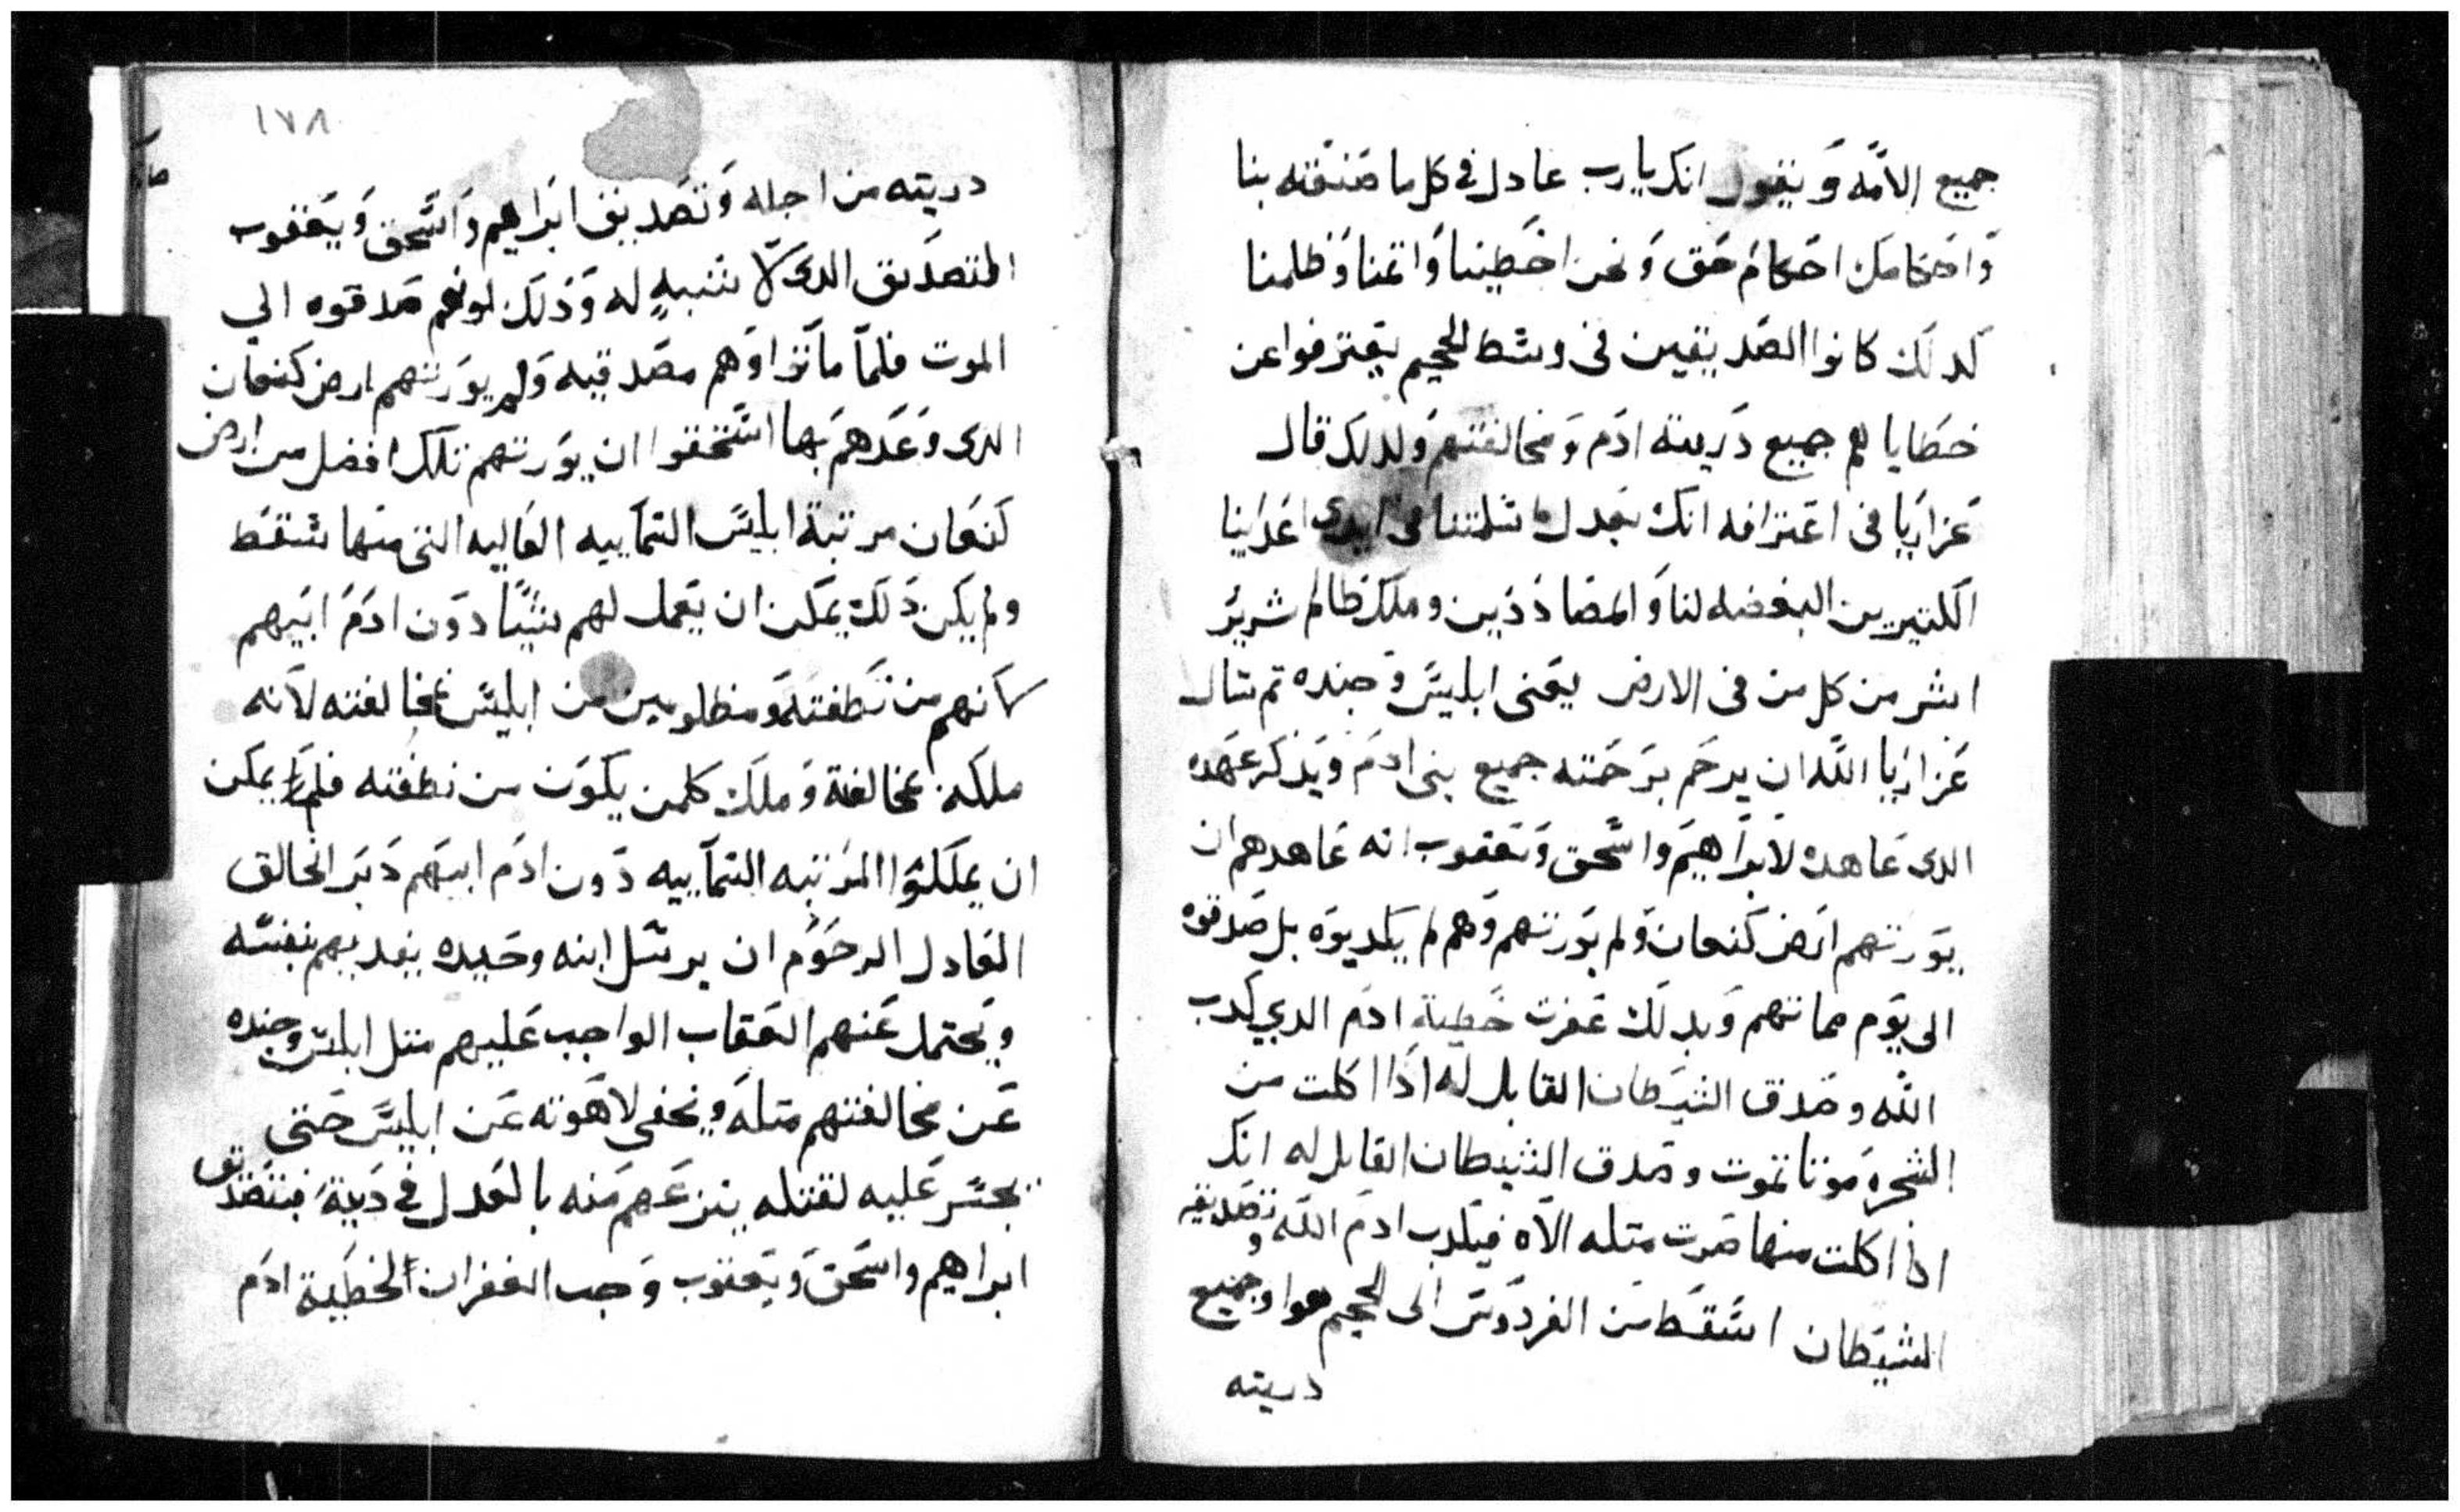 جميع الامه ويقول انك يارب عادل في كل ما صنعته بنا
واحكامك احكام حق ونحن اخطينا واتمنا وظلمنا
كدلك كانوا الصديقين فى وسط الجحيم يعترفوا عن
خطاياهم جميع دريته ادم ومخالفتهم ولدلك قال
عزاريا فى اعترافه انك بعدل اسلمتنا فى ايدى اعداينا
الكتيرين البغضه لنا والمضاددين وملك ظالم شرير
اشر من كل من فى الارض يعنى ابليس وجنده تم سال
عزاريا الله ان يرحم برحمته جميع بنى ادم ويذكر عهده
الدى عاهده لابراهيم واسحق ويعقوب انه عاهدهم ان
يورتهم ارض كنعان ولم يورتهم وهم لم يكدبوه بل صدقوه
الى يوم مماتهم وبدلك غفرت خطية ادم الدي كدب
الله وصدق الشيطان القايل له اذا اكلت من
الشجره موتا تموت وصدق الشيطان القايل له انك
اذا اكلت منها صرت متله الاه فبكدب ادم الله وتصديقه
الشيطان اسقط من الفردوس الى الجحيم هوا وجميع
دريته
١٧٨
دريته من اجله وتصديق ابراهيم واسحق ويعقوب
التصديق الدى لا شبيه له وذلك لونهم صدقوه الي
الموت فلما ماتوا وهم مصدقيه ولم يورتهم ارض كنعان
الدى وعدهم بها استحقوا ان يورتهم تلك افضل من ارض
كنعان مرتبة ابليس السماييه العاليه التى منها سقط
ولم يكن ذلك يمكن ان يعمل لهم شيا دون ادم ابيهم
كانهم من نطفته ومظلومين من ابليس بمخالفته لانه
ملكه بمخالفة وملك كلمن يكون من نطفته فلما لم يمكن
ان يملكوا المرتبه السماييه دون ادم ابيهم دبر الخالق
العادل الرحوم ان يرسل ابنه وحيده يفديهم بنفسه
ويحتمل عنهم العقاب الواجب عليهم متل ابليس وجنده
عن مخالفتهم متله ويخفى لاهوته عن ابليس حتى
يجسر عليه لقتله ينزعهم منه بالعدل في دية فبتصديق
ابراهيم واسحق ويعقوب وجب الغفران لخطية ادم